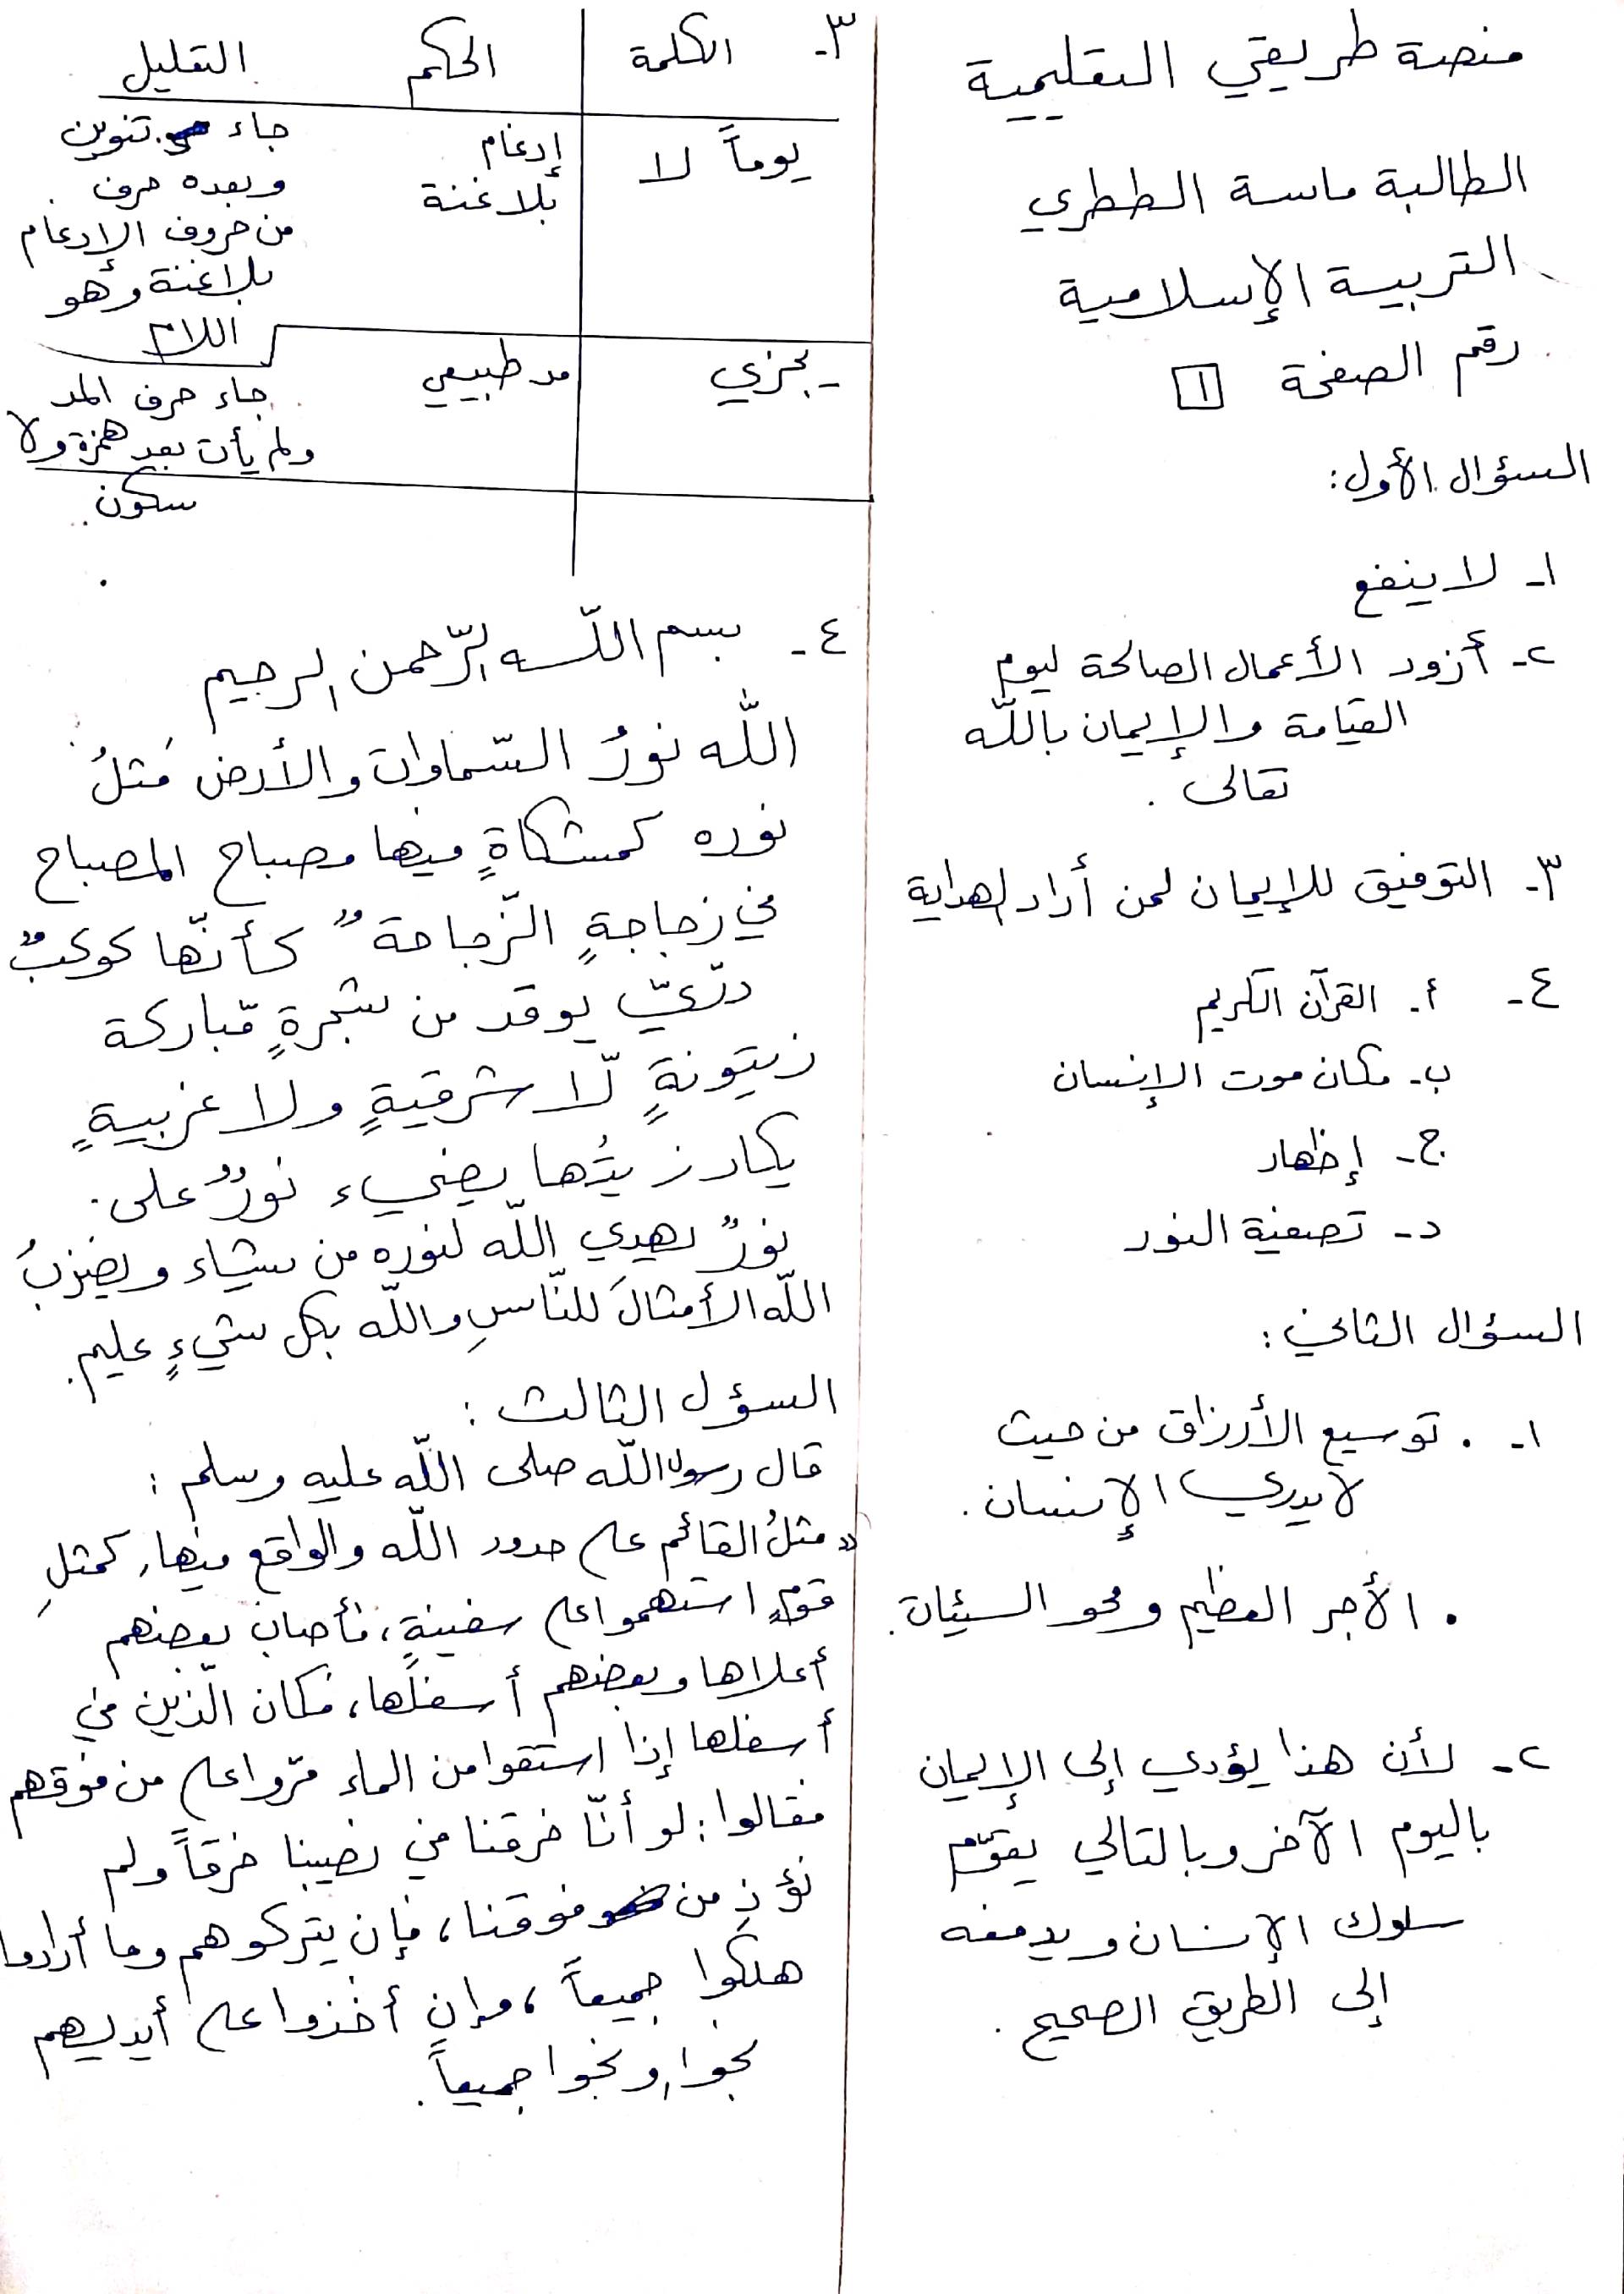 منصة طريقي التعليمية
الطالبة ماسة الططري
التربية الإسلامية
رقم الصفحة ١
السؤال الأول:
١- لا ينفع
٢- أزود الأعمال الصالحة ليوم
القيامة والإيمان باللّه
تعالى .
٣- التوفيق للإيمان لمن أراد الهداية
٤- أ- القرآن الكريم
ب- مكان موت الإنسان
ج- إظهار
د- تصفية النور
السؤال الثاني:
١- . توسيع الأرزاق من حيث
لا يدري الإنسان.
. الأجر العظيم ومحو السيئات.
٢- لأن هذا يؤدي إلى الإيمان
باليوم الآخر وبالتالي يقوّم
سلوك الإنسان ويدفعه
إلى الطريق الصحيح .
٣- الكلمة الحكم التعليل
يوماً لا إدغام بلا غنة جاء تنوين
وبعده حرف
من حروف الإدغام
بلا غنة وهو
اللام
يجزي مد طبيعي جاء حرف المد
ولم يأت بعد همزة ولا
سكون.
٤- بسم اللّه الرّحمن الرحيم
اللّه نورُ السّماوات والأرض مَثلُ
نوره كمشكاةٍ فيها مصباح المصباح
في زجاجةٍ الزّجاجةٌ كأنّها كوكبٌ
درّيّ يوقد من شجرةٍ مّباركة
زيتونةٍ لّا شرقيةٍ ولا غربيةٍ
يكاد زيتُها يضيء نورٌ على
نورٌ يهدي اللّه لنوره من يشاء ويضربُ
اللّه الأمثالَ للنّاسِ واللّه بكل شيءٍ عليم.
السؤل الثالث :
قال رسول اللّه صلى اللّه عليه وسلم :
«مثلُ القائم على حدود اللّه والواقع فيها، كمثلِ
قومٍ استهموا على سفينةٍ، فأصاب بعضهم
أعلاها وبعضهم أسفلَها، فكان الّذين في
أسفلها إذا استقوا من الماء مرّوا على من فوقهم
فقالوا: لو أنّا خرقنا في نصيبنا خرقاً ولم
نؤذِ من فوقنا، فإن يتركوهم وما أرادوا
هلكوا جميعاً، وإن أخذوا على أيديهم
نجوا، ونجوا جميعاً.